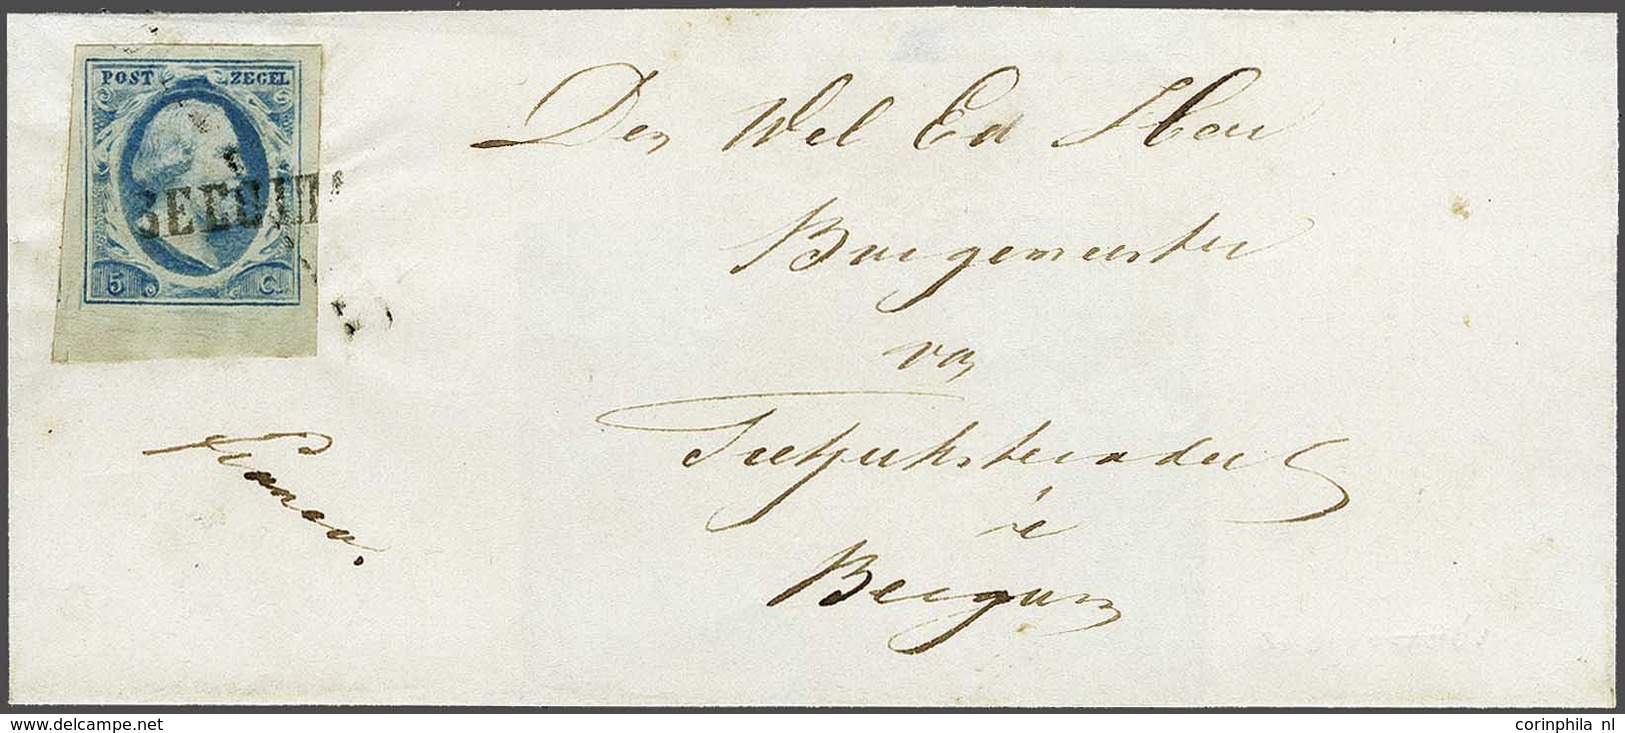 POST ZEGEL
5 C.
Den Wel Ed Heer
Burgemeester
van
Tietjerksteradeel
te
Bergum
Franco.
www.delcampe.net
corinphila nl